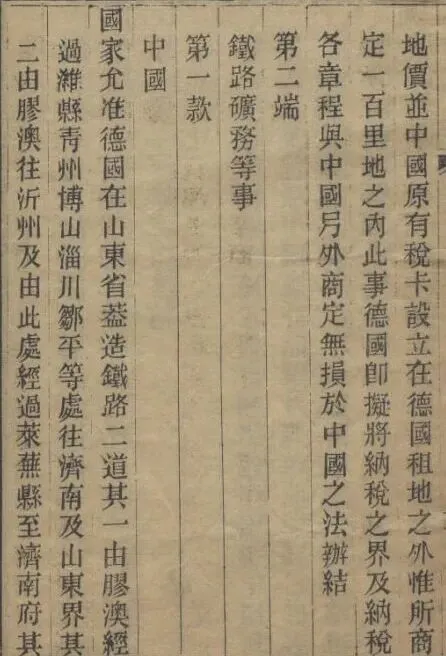 地價並中國原有稅卡設立在德國租地之外惟所商
定一百里地之內此事德國卽擬將納稅之界及納稅
各章程與中國另外商定無損於中國之法辦結
第二端
鐵路礦務等事
第一款
中國
國家允准德國在山東省葢造鐵路二道其一由膠澳經
過濰縣靑州博山淄川鄒平等處往濟南及山東界其
二由膠澳往沂州及由此處經過萊蕪縣至濟南府其